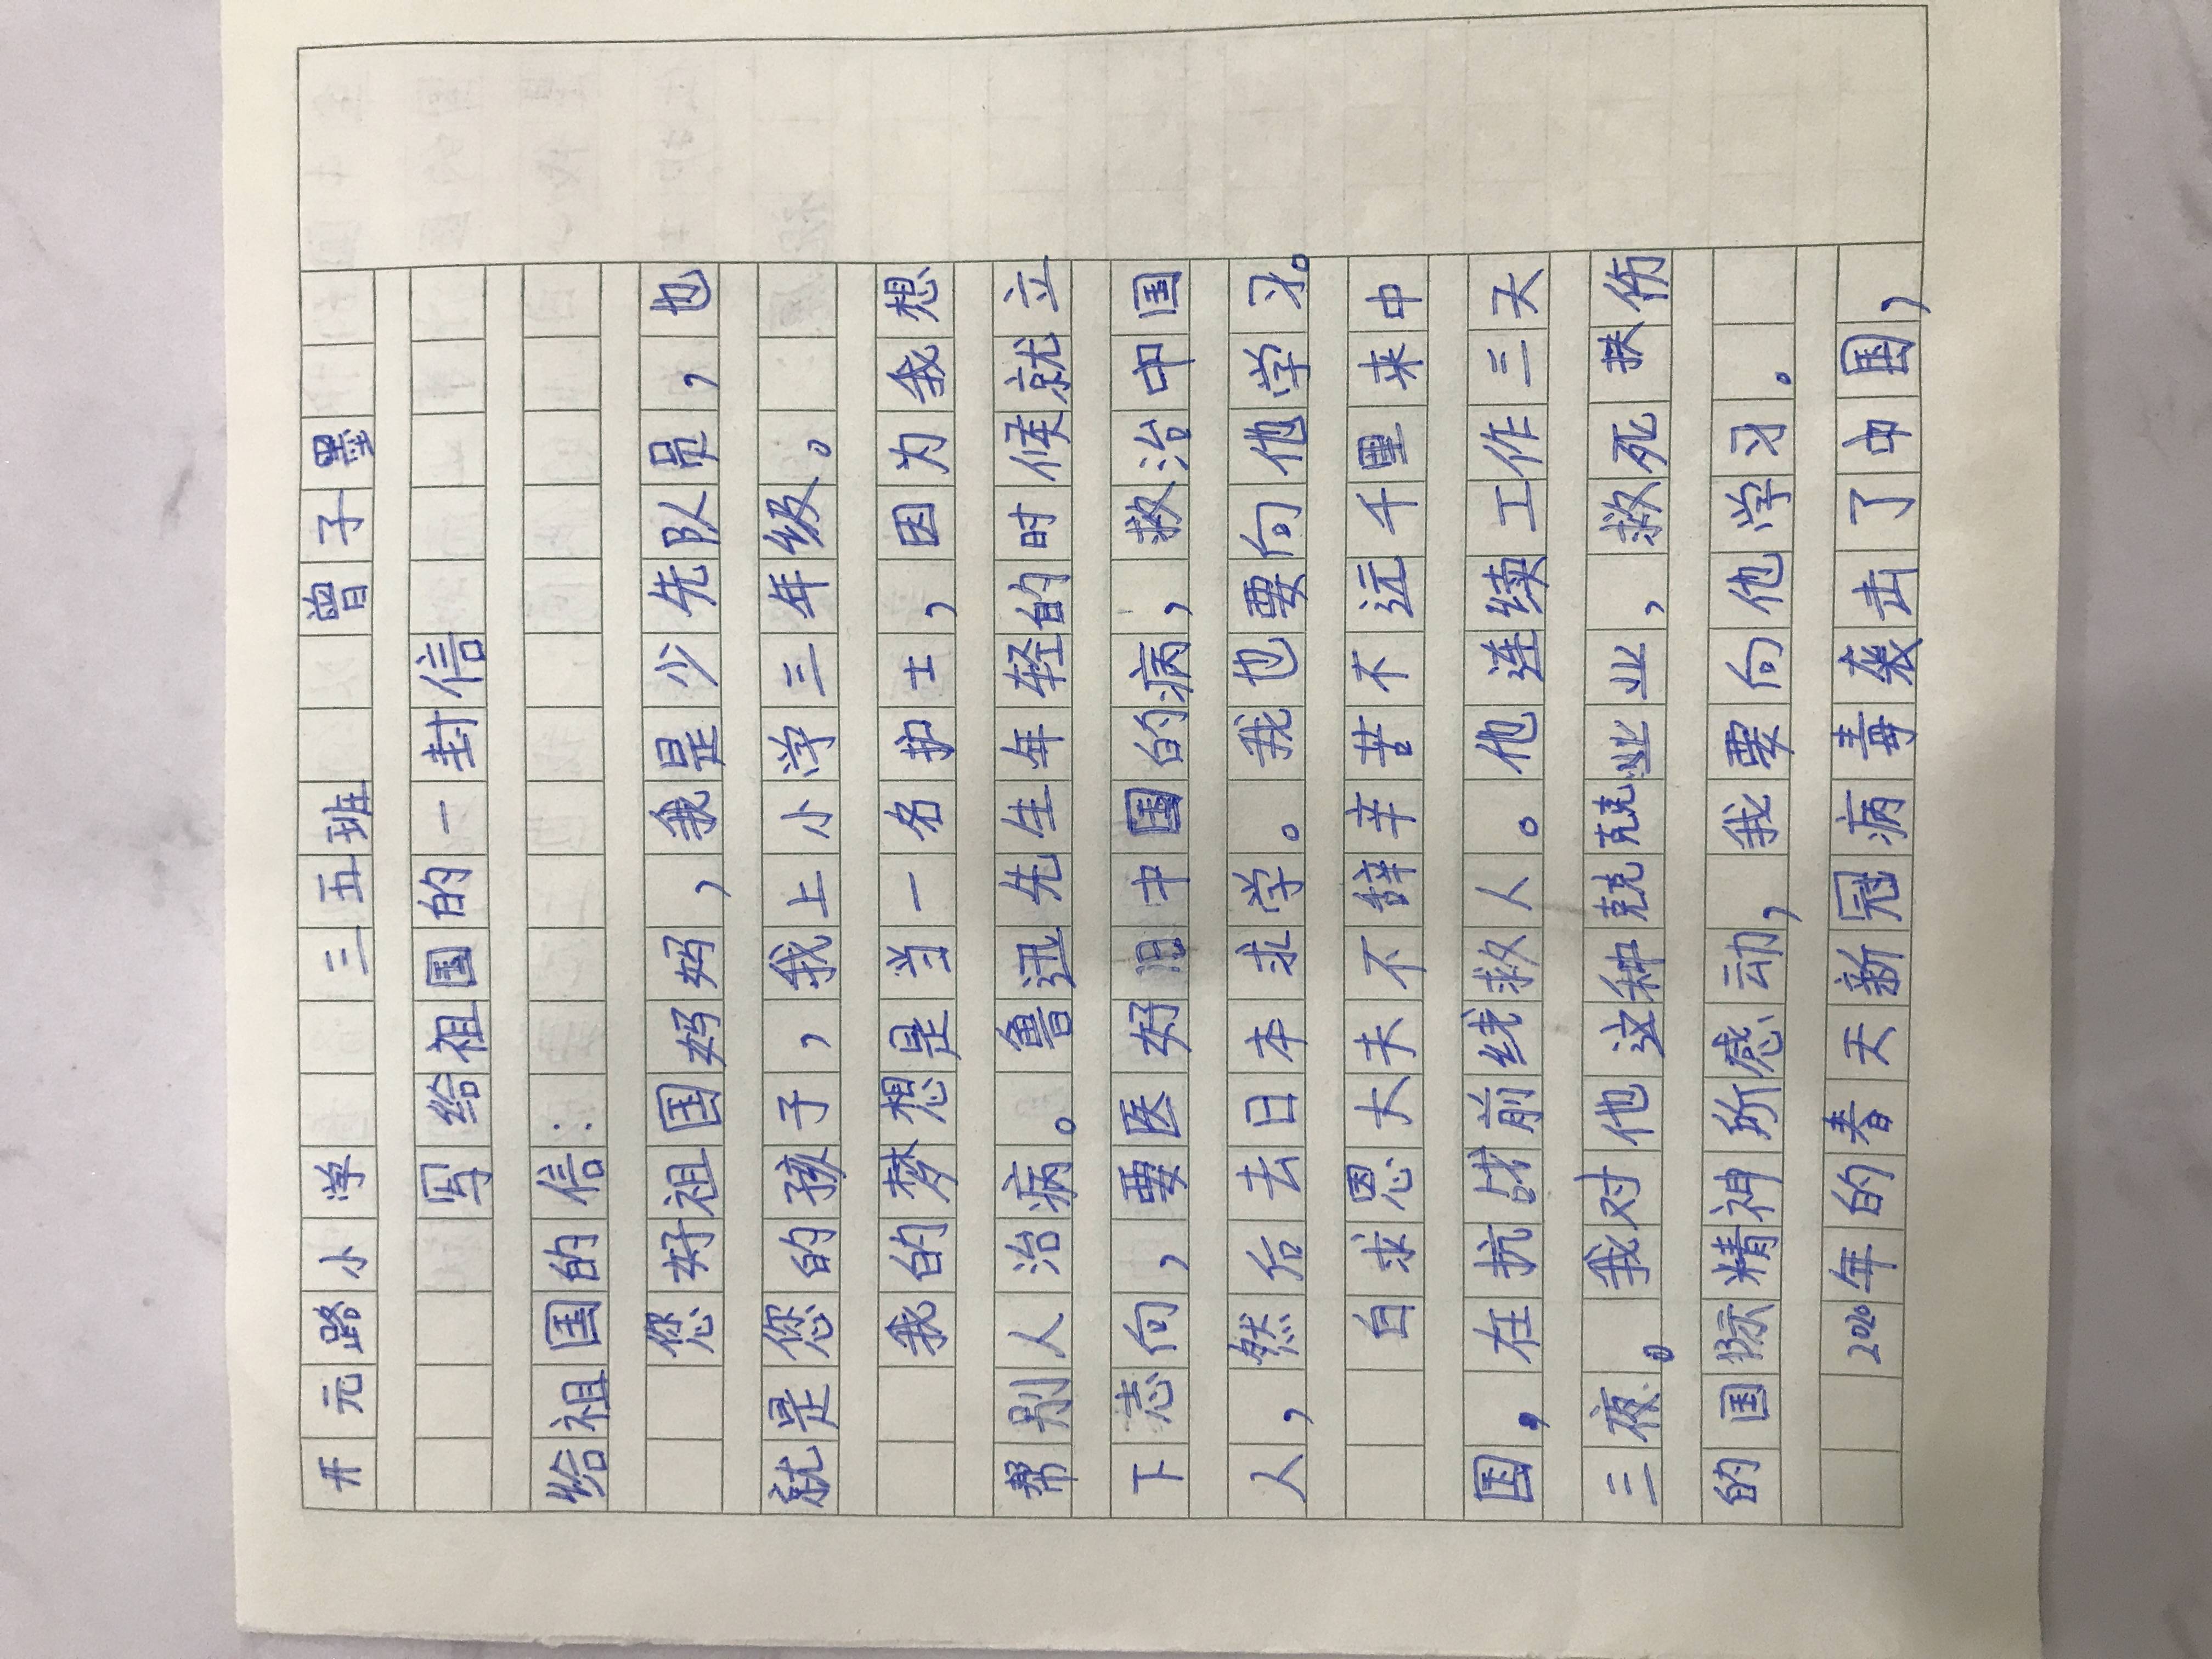 开元路小学 三五班 曾子墨
写给祖国的一封信
给祖国的信：
您好祖国妈妈，我是少先队员，也
就是您的孩子，我上小学三年级。
我的梦想是当一名护士，因为我想
帮别人治病。鲁迅先生年轻的时候就立
下志向，要医好中国的病，救治中国
人，然后去日本求学。我也要向他学习。
白求恩大夫不辞辛苦不远千里来中
国，在抗战前线救人。他连续工作三天
三夜。我对他这种兢兢业业，救死扶伤
的国际精神所感动，我要向他学习.
2020年的春天新冠病毒袭击了中国，